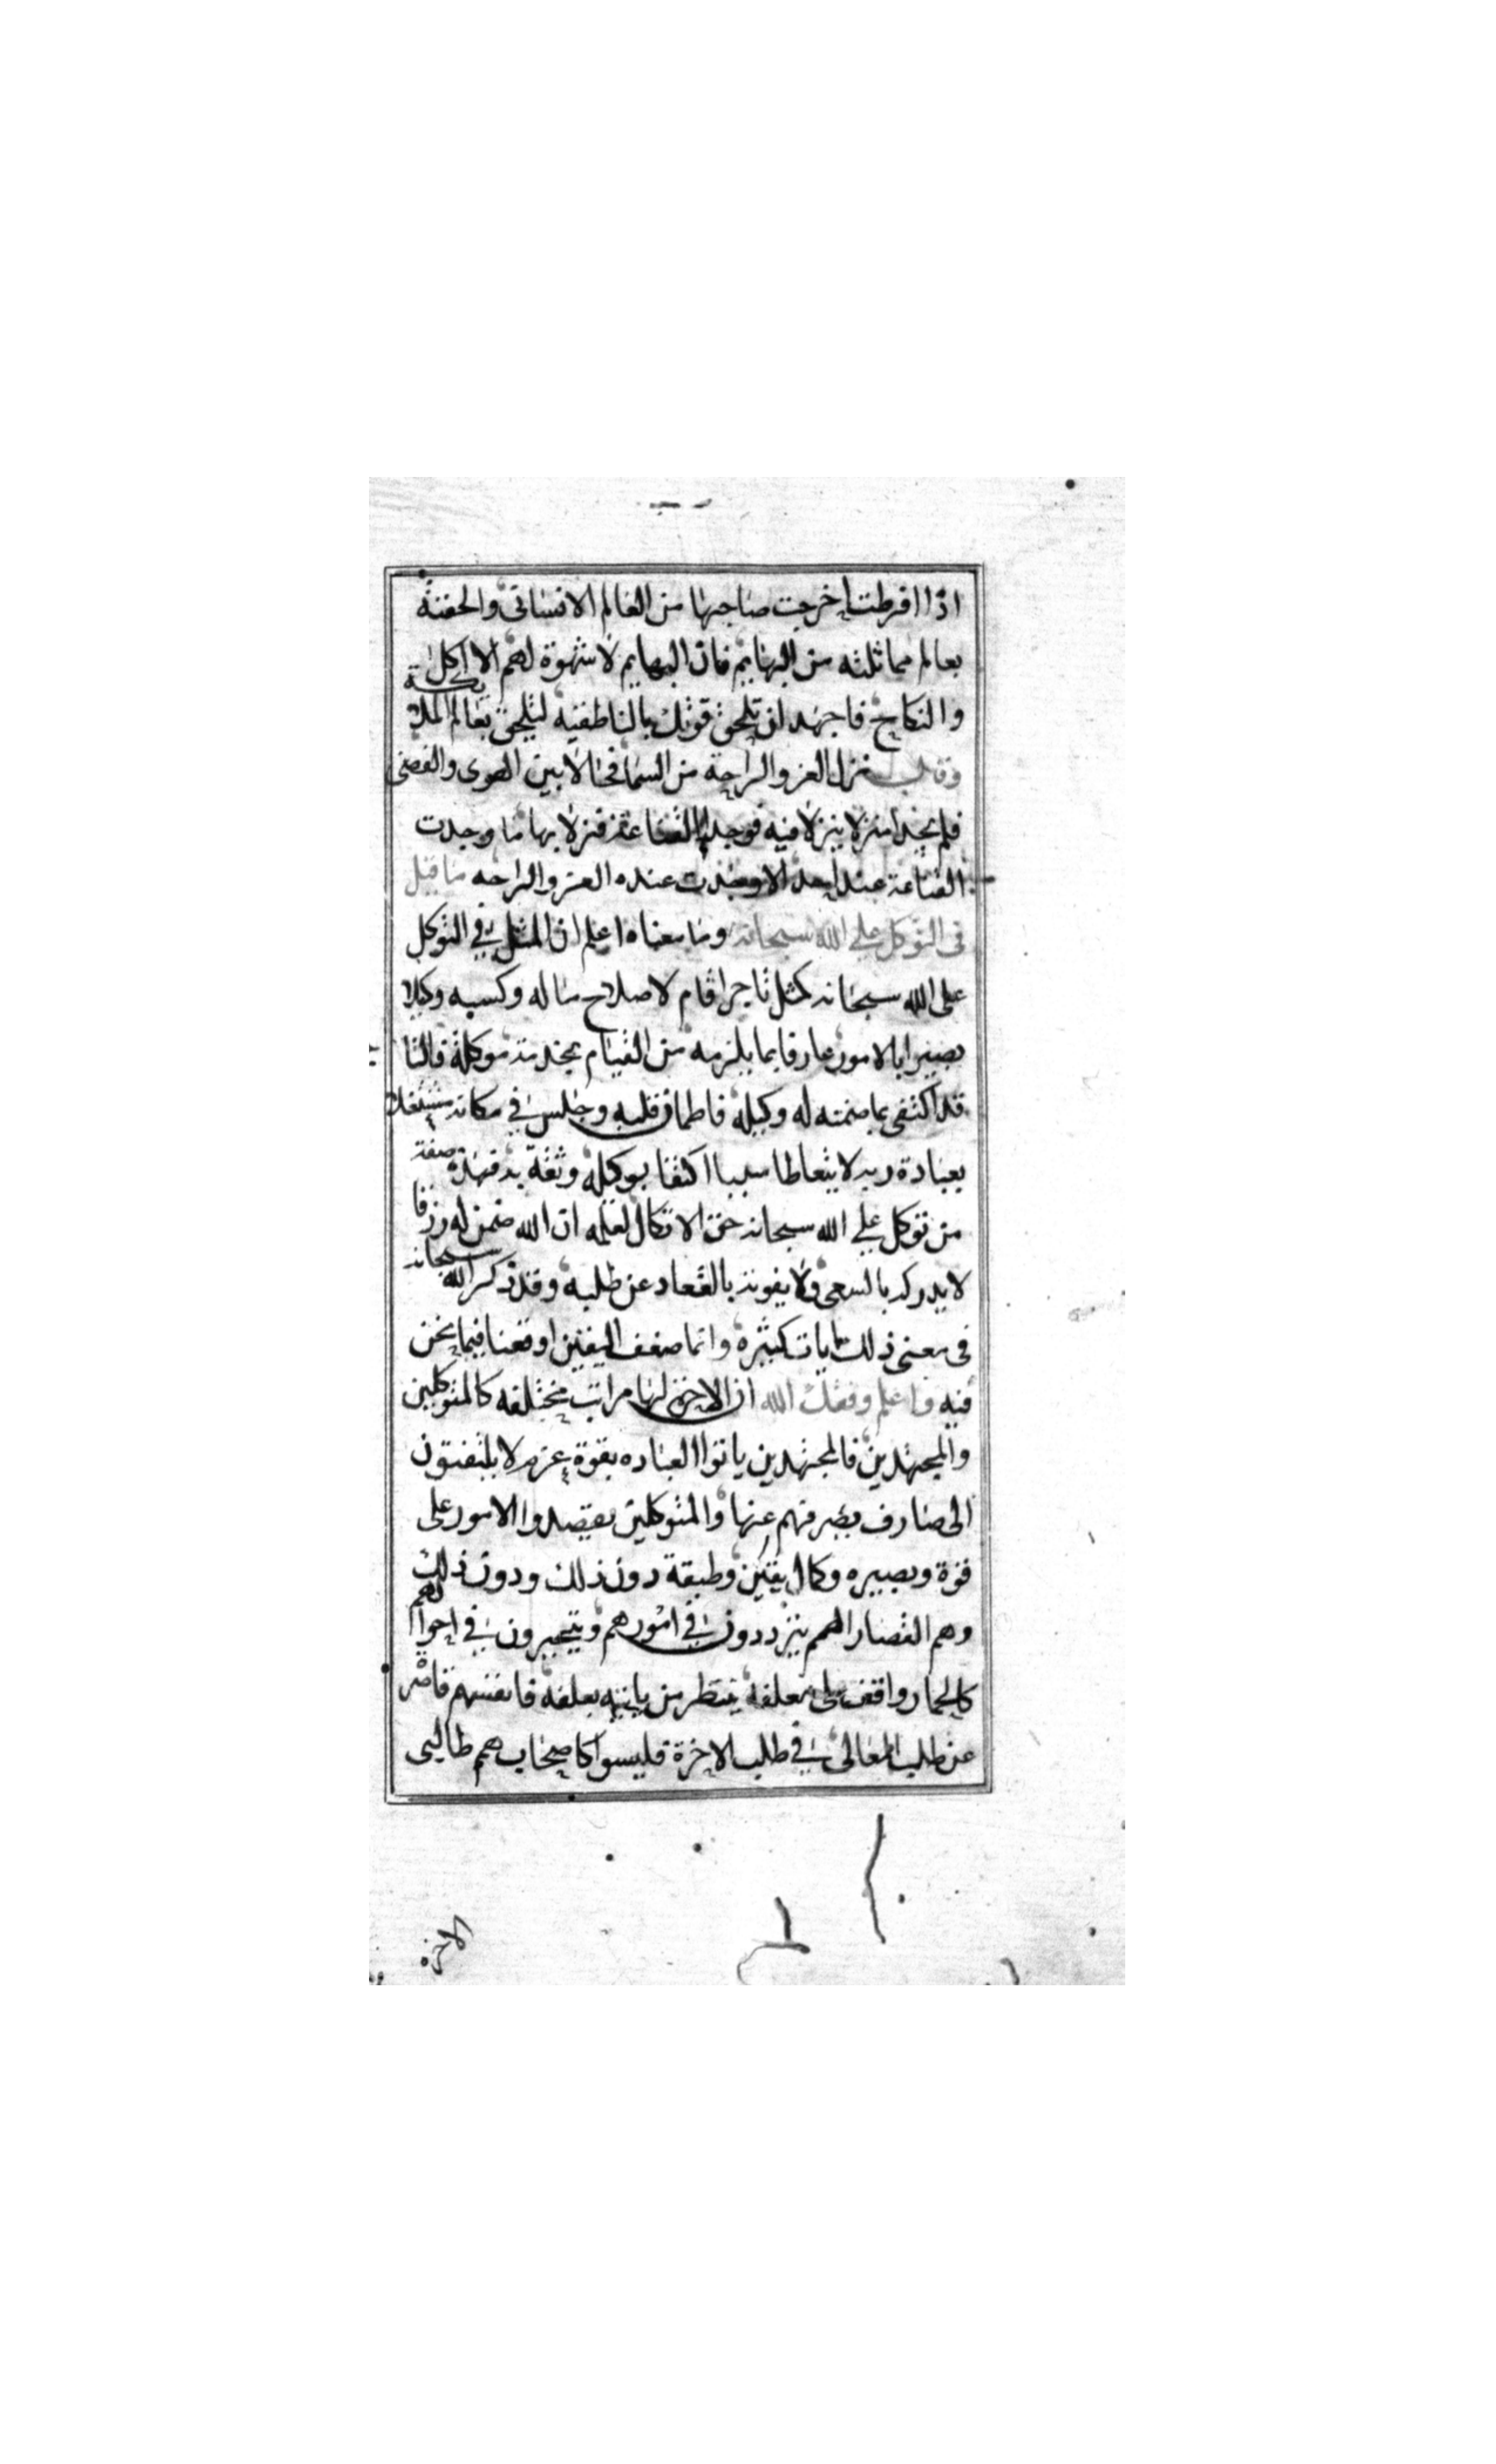 اذا افرطت اخرجت صاحبها من العالم الانسانى والحقته
بعالم مماثلته من البهايم فان البهايم لا شهوة لهم الا الاكل
والنكاح فاجهد ان تلحق قوتك بالناطقيه لتلحق بعالم الملائكة
وقال نزل العز والراحة من السما فجالا بين الهوى والفضى
فلم يجدا منزلا ينزلا فيه فوجدا القناعة فنزلا بها ما وجدت
القناعة عند احد الا وجدت عنده العز والراحه ما قيل
فى التوكل على الله سبحانه وما معناه اعلم ان المثل فى التوكل
على الله سبحانه كمثل تاجر اقام لاصلاح ماله وكسبه وكيلا
بصيرا بالامور عارفا بما يلزمه من القيام بخدمته موكله فالتا
قد اكتفى بما ضمنه له وكيله فاطمان قلبه وجلس فى مكانه مشتغلا
بعبادة ربه لا يتعاطا سببا اكتفا بوكيله وثقة به فهذه صفة
من توكل على الله سبحانه حق الاتكال لعلمه ان الله ضمن له رزقا
لا يدركه بالسعى ولا يفوته بالقعاد عن طلبه وقد ذكر الله سبحانه
فى معنى ذلك ايات كثيرة وانما ضعف اليقين اوقعنا فيما نحن
فيه واعلم وفقك الله ان الاخرة لها مراتب مختلفه كالمتوكلين
والمجتهدين فالمجتهدين ياتوا العباده بقوة عزم لا يلتفتون
الى صارف يصرفهم عنها والمتوكلين يقصدوا الامور على
قوة وبصيره وكمال يقين وطبقة دون ذلك ودون ذلك
وهم القصار الهمم يترددون فى امورهم ويتحيرون فى احوالهم
كالحمار واقف على معلفه ينتظر من ياتيه بعلفه فانفسهم قاصر
عن طلب المعالى فى طلب الاخرة فليسوا كاصحاب همم طالبى
الاخره